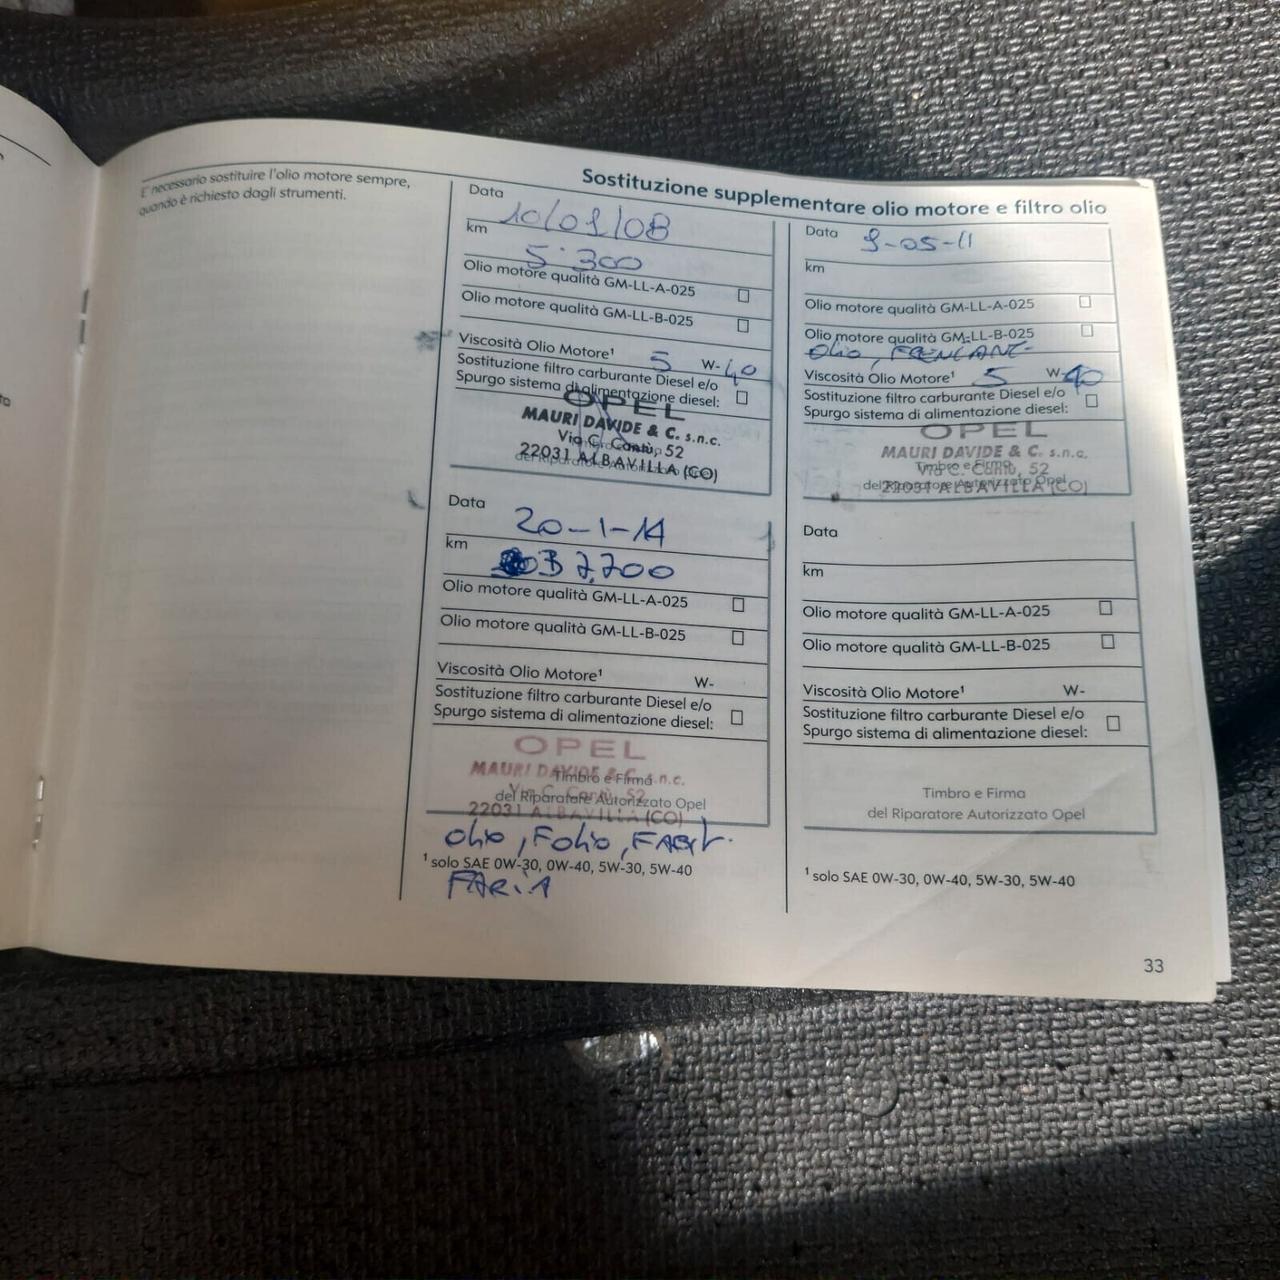 E' necessario sostituire l'olio motore sempre,
quando è richiesto dagli strumenti.
Sostituzione supplementare olio motore e filtro olio
Data 10/01/08
km 5.300
Olio motore qualità GM-LL-A-025
Olio motore qualità GM-LL-B-025
Viscosità Olio Motore¹ 5 W-40
Sostituzione filtro carburante Diesel e/o
Spurgo sistema di alimentazione diesel:
OPEL
MAURI DAVIDE & C. s.n.c.
Via C. Cantù, 52
22031 ALBAVILLA (CO)
Data 20-1-14
km 37.700
Olio motore qualità GM-LL-A-025
Olio motore qualità GM-LL-B-025
Viscosità Olio Motore¹ W-
Sostituzione filtro carburante Diesel e/o
Spurgo sistema di alimentazione diesel:
OPEL
MAURI DAVIDE & C. s.n.c.
Timbro e Firma
Via C. Cantù, 52
del Riparatore Autorizzato Opel
22031 ALBAVILLA (CO)
olio, Folio,
¹ solo SAE 0W-30, 0W-40, 5W-30, 5W-40
FARIA
Data 9-05-11
km
Olio motore qualità GM-LL-A-025
Olio motore qualità GM-LL-B-025
olio,
Viscosità Olio Motore¹ 5 W-40
Sostituzione filtro carburante Diesel e/o
Spurgo sistema di alimentazione diesel:
OPEL
MAURI DAVIDE & C. s.n.c.
Timbro e Firma
Via C. Cantù, 52
del Riparatore Autorizzato Opel
22031 ALBAVILLA (CO)
Data
km
Olio motore qualità GM-LL-A-025
Olio motore qualità GM-LL-B-025
Viscosità Olio Motore¹ W-
Sostituzione filtro carburante Diesel e/o
Spurgo sistema di alimentazione diesel:
Timbro e Firma
del Riparatore Autorizzato Opel
¹ solo SAE 0W-30, 0W-40, 5W-30, 5W-40
33